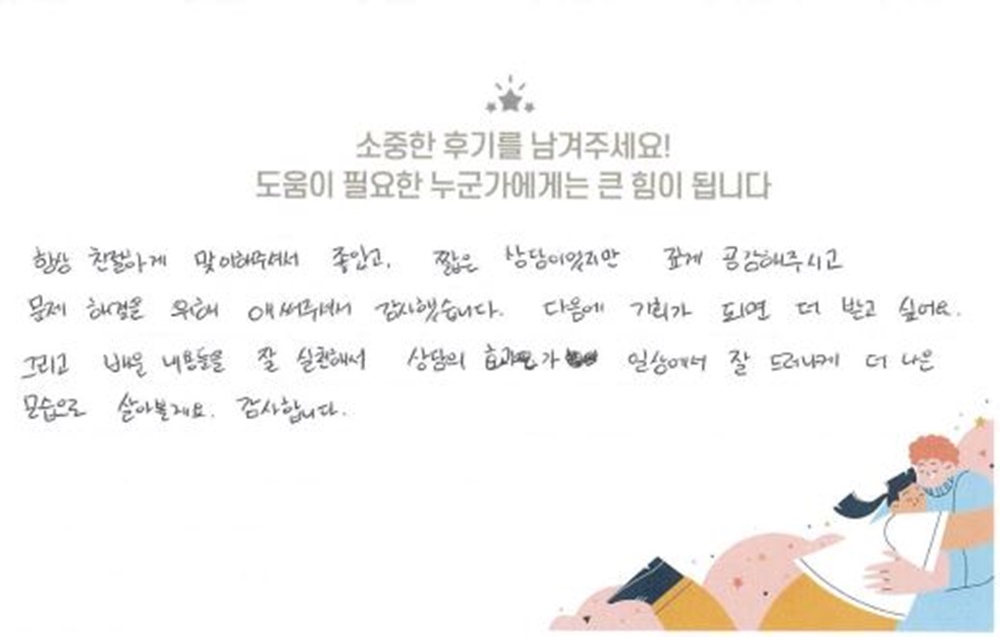 소중한 후기를 남겨주세요!
도움이 필요한 누군가에게는 큰 힘이 됩니다
항상 친절하게 맞이해주셔서 좋았고, 짧은 상담이었지만 깊게 공감해주시고
문제 해결을 위해 애써주셔서 감사했습니다. 다음에 기회가 되면 더 받고 싶어요.
그리고 배운 내용들을 잘 실천해서 상담의 효과가 일상에서 잘 드러나게 더 나은
모습으로 살아볼게요. 감사합니다.